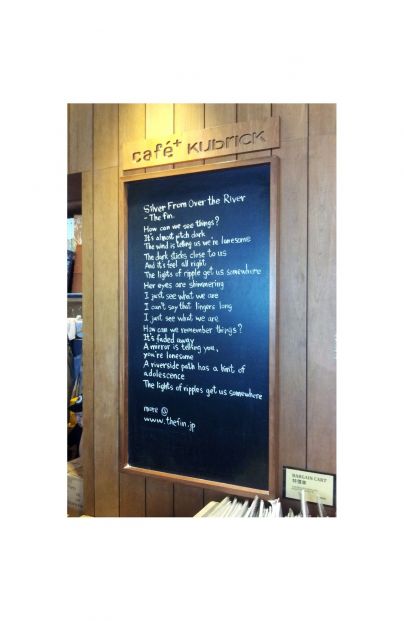 café+ KUBRICK
Silver From Over the River
- The fin.
How can we see things?
It's almost pitch dark
The wind is telling us we're lonesome
The dark sticks close to us
And it's feel all right
The lights of ripple get us somewhere
Her eyes are shimmering
I just see what we are
I can't say that lingers long
I just see what we are
How can we remember things?
It's faded away
A mirror is telling you,
you're lonesome
A riverside path has a hint of
adolescence
The lights of ripples get us somewhere
more @
www.thefin.jp
BARGAIN CART
特價車